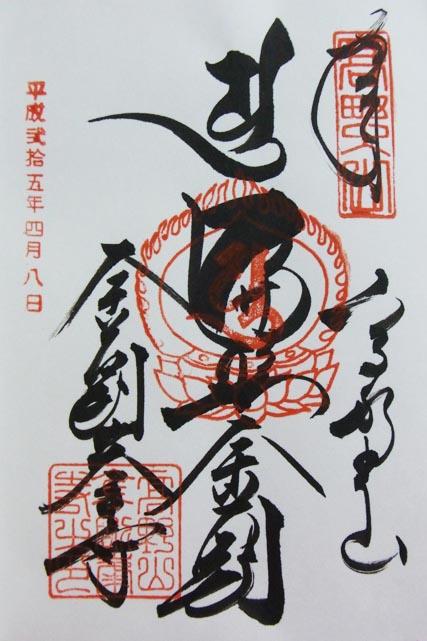 高野山
高野山
遍照金剛
金剛峯寺
平成弐拾五年四月八日